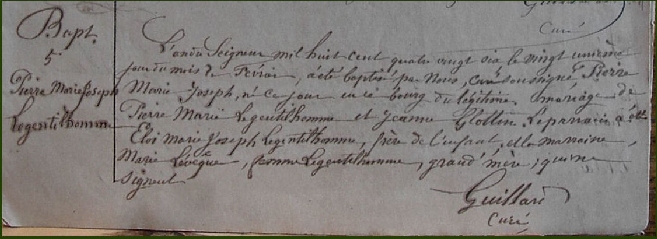 Curé
Bapt.
5
Pierre Marie Joseph
Legentilhomme
L'an du Seigneur mil huit cent quatre vingt six le vingt unième
jour du mois de Février, a été baptisé par Nous, curé soussigné Pierre
Marie Joseph, né ce jour en ce bourg du légitime mariage de
Pierre Marie Legentilhomme et Jeanne Glotton. Le parrain a été
Eloi Marie Joseph Legentilhomme, frère de l'enfant, et la marraine
Marie Levêque, femme Legentilhomme, grand'mère, qui ne
signent
Guillard
Curé